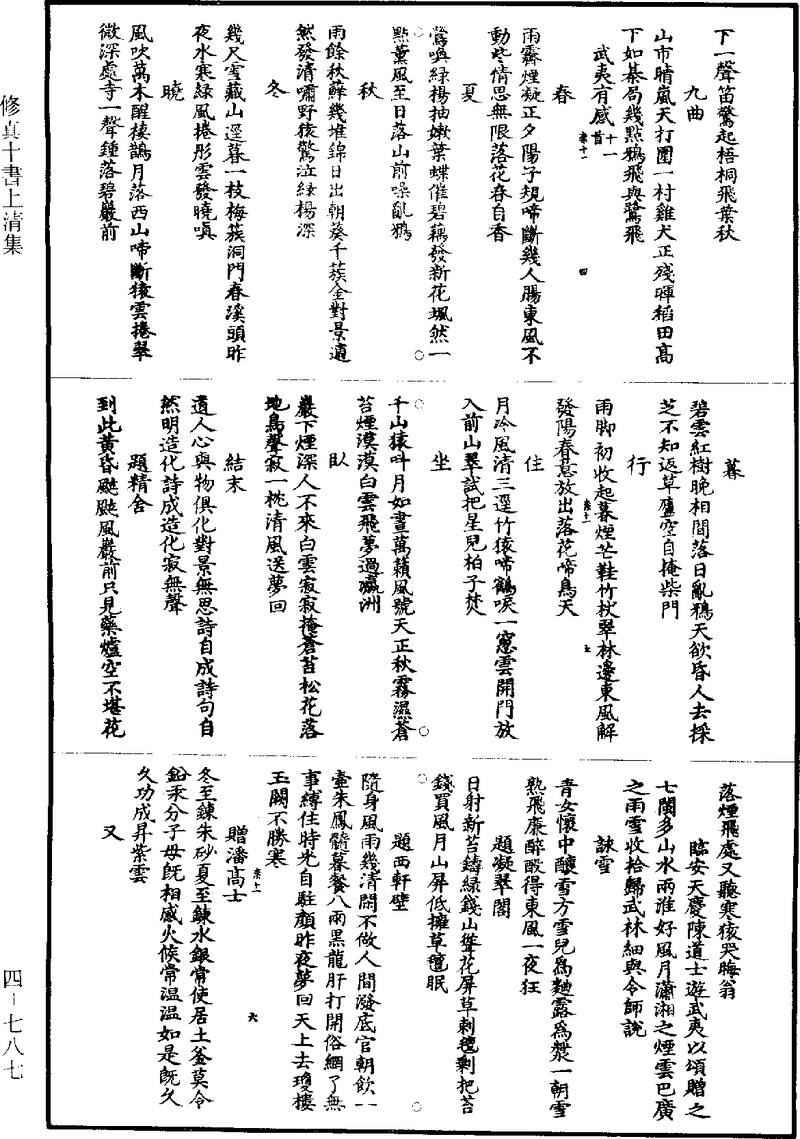 下一聲笛驚起梧桐飛葉秋
九曲
山市晴嵐天打圍一村雞犬正殘暉稻田高
下如棊局幾點鴉飛與鷺飛
武夷有感十一首
卷十一
四
春
雨霽煙凝正夕陽子規啼斷幾人腸東風不
動些情思無限落花春自香
夏
鶯喚綠楊抽嫩葉蝶催碧藕發新花颯然一
點薰風至日落山前噪亂鴉
秋
雨餘秋蘚幾堆錦日出朝葵千蔟金對景遍
然發清嘯野猿驚泣綠楊深
冬
幾尺雪藏山逕暮一枝梅蔟洞門春溪頭昨
夜水寒綠風捲彤雲發曉嗔
曉
風吹萬木醒棲鵲月落西山啼斷猿雲捲翠
微深處寺一聲鍾落碧巖前
暮
碧雲紅樹晚相間落日亂鴉天欲昏人去採
芝不知返草廬空自掩柴門
行
雨脚初收起暮煙芒鞋竹杖翠林邊東風解
發陽春意放出落花啼鳥天
卷十一
五
住
月冷風清三逕竹猿啼鶴唳一窻雲開門放
入前山翠試把星兒柏子焚
坐
千山猿叫月如晝萬籟風號天正秋霧濕蒼
苔煙漠漠白雲飛夢過瀛洲
臥
巖下煙深人不來白雲寂寂掩蒼苔松花落
地鳥聲寂一枕清風送夢回
結末
道人心與物俱化對景無思詩自成詩句自
然明造化詩成造化寂無聲
題精舍
到此黃昏颭颭風巖前只見藥爐空不堪花
落煙飛處又聽寒猿哭晦翁
臨安天慶陳道士遊武夷以頌贈之
七閩多山水兩淮好風月瀟湘之煙雲巴廣
之雨雪收拾歸武林細與令師說
詠雪
青女懷中釀雪方雪兒為麯露為漿一朝雪
熟飛廉醉酘得東風一夜狂
題凝翠閣
日射新苔鑄綠錢山聳花屏草刺氊剩把苔
錢買風月山屏低擁草氊眠
題西軒壁
隨身風雨幾清閑不做人間潑底官朝飲一
壺朱鳳髓暮餐八兩黑龍肝打開俗網了無
事縛住時光自駐顏昨夜夢回天上去瓊樓
玉闕不勝寒
贈潘高士
卷十一
六
冬至鍊朱砂夏至鍊水銀常使居土釜莫令
鉛汞分子母旣相感火候常温温如是旣久
久功成昇紫雲
又
修真十書上清集
四－七八七